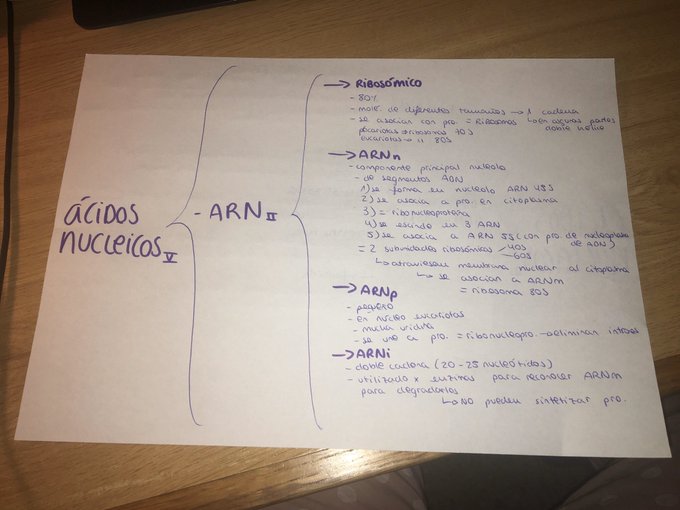 ácidos
nucleicos V
- ARN II
→ RIBOSÓMICO
- 80%
- moléc. de diferentes tamaños → 1 cadena
- se asocian con pro. = Ribosomas ↳ en algunas partes
doble hélice
procariotas → ribosomas 70S
eucariotas → 11 80S
→ ARNn
- componente principal nucleolo
- de segmentos ADN
1) se forma en nucleolo ARN 45S
2) se asocia a pro. en citoplasma
3) = ribonucleoproteína
4) se escinde en 3 ARN
5) se asocia a ARN 5S (con pro de nucleoplasma
de ADN)
= 2 subunidades ribosómicos 40S
60S
↳ atraviesan membrana nuclear al citoplasma
↳ se asocian a ARNm
= ribosoma 80S
→ ARNp
- pequeño
- en núcleo eucariotas
- mucha uridina
- se une a pro. = ribonucleopro. → eliminan intrones
→ ARNi
- doble cadena (20-25 nucleótidos)
- utilizado x enzimas para reconocer ARNm
para degradarlos
↳ NO pueden sintetizar pro.